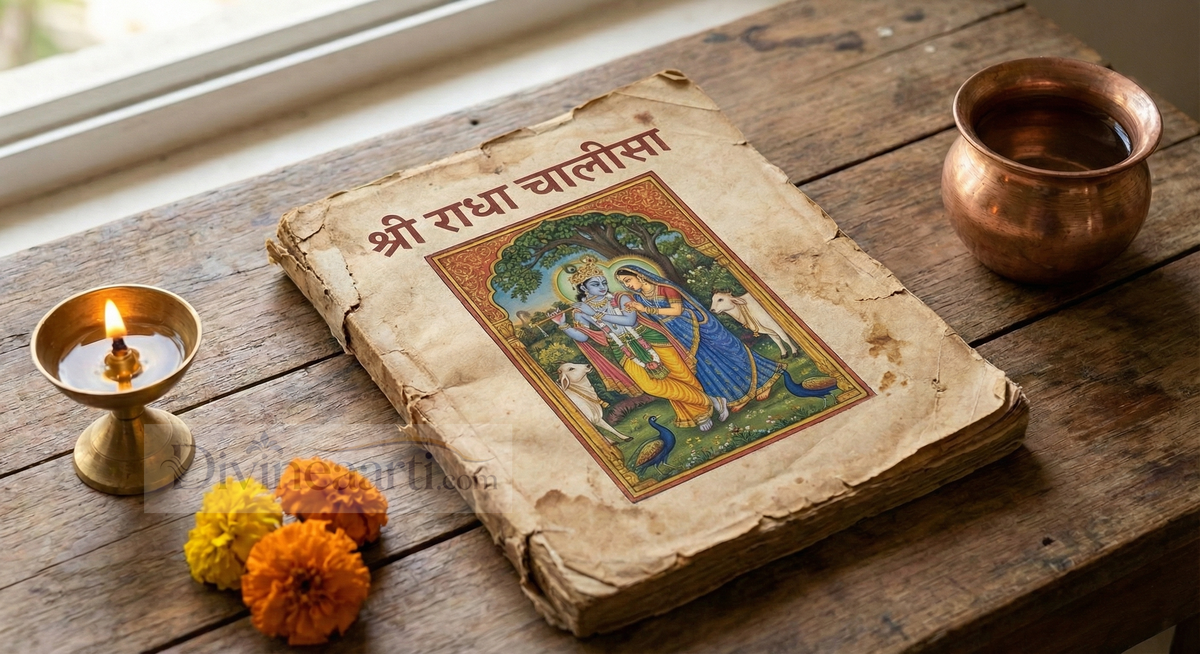 श्री राधा चालीसा
Divineaarti.com